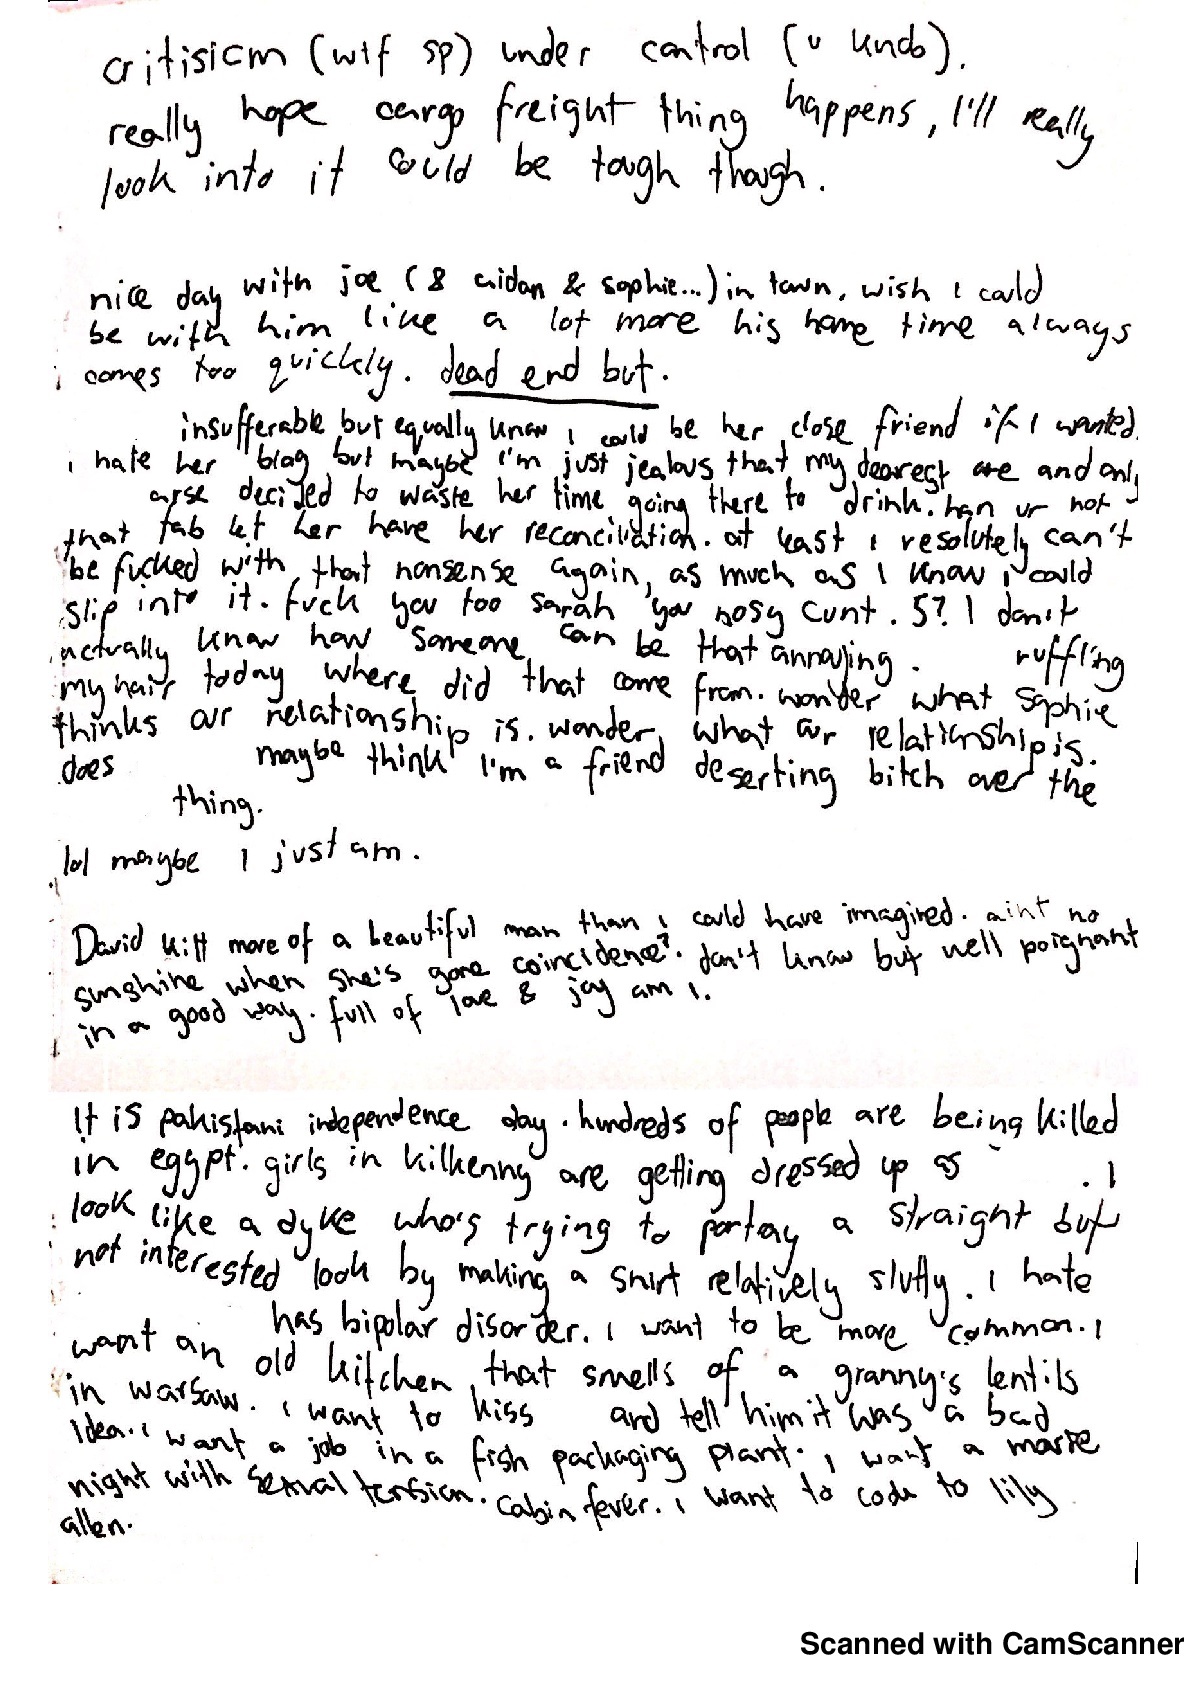 critisicm (wtf sp) under control (u kndo).
really hope cargo freight thing happens, I'll really
look into it could be tough though.
nice day with joe (& aidan & sophie...) in town. wish I could
be with him like a lot more his home time always
comes too quickly. dead end but.
insufferable but equally know I could be her close friend if I wanted.
i hate her blog but maybe I'm just jealous that my dearest are and only
arse decided to waste her time going there to drink. han ur not
that fab let her have her reconciliation. at least I resolutely can't
be fucked with that nonsense again, as much as I know I could
slip into it. fuck you too sarah you nosy cunt. 5? I don't
actually know how someone can be that annoying. ruffling
my hair today where did that come from. wonder what Sophie
thinks our relationship is. wonder what our relationship is.
does maybe think I'm a friend deserting bitch over the
thing.
lol maybe I just am.
David Kitt more of a beautiful man than I could have imagined. aint no
sunshine when she's gone coincidence? don't know but well poignant
in a good way. full of love & joy am I.
It is pakistani independence day. hundreds of people are being killed
in egypt. girls in kilkenny are getting dressed up as . I
look like a dyke who's trying to portay a straight but
not interested look by making a shirt relatively slutty. I hate
has bipolar disorder. I want to be more common. I
want an old kitchen that smells of a granny's lentils
in warsaw. I want to kiss and tell him it was a bad
idea. I want a job in a fish packaging plant. I want a movie
night with sexual tension. Cabin fever. I want to code to lily
allen.
Scanned with CamScanner